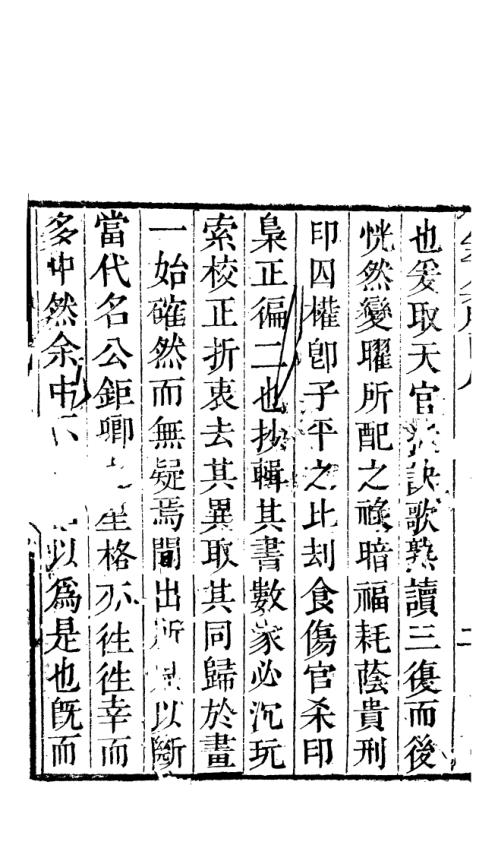 也爰取天官訣歌熟讀三復而後
恍然變曜所配之祿暗福耗蔭貴刑
印囚權卽子平之比刦食傷官杀印
梟正徧二也抄輯其書數家必沉玩
索校正折衷去其異取其同歸於畫
一始確然而無疑焉間出所以斷
當代名公鉅卿星格亦徃徃幸而
多中然余中以爲是也旣而